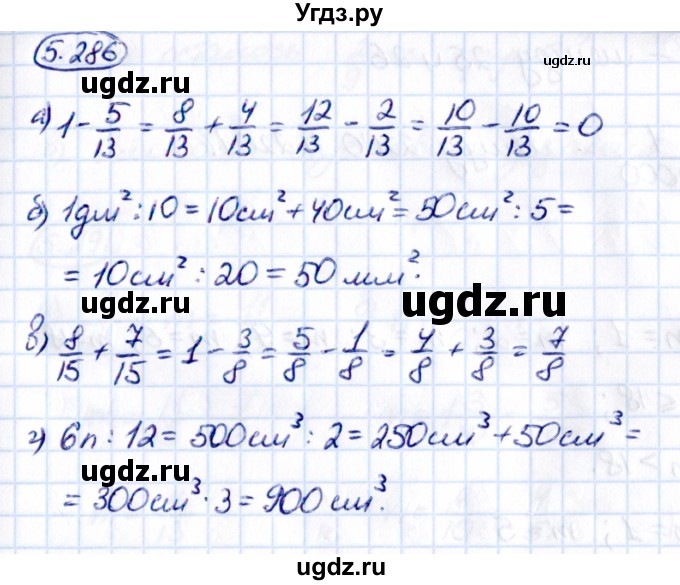 Угдз.ру
5.286
ugdz.ru
ugdz.ru
а) 1 - 5/13 = 8/13 + 4/13 = 12/13 - 2/13 = 10/13 - 10/13 = 0
ugdz.ru
б) 1дм² : 10 = 10см² + 40см² = 50см² : 5 =
= 10см² : 20 = 50 мм².
ugdz.ru
ugdz.ru
в) 8/15 + 7/15 = 1 - 3/8 = 5/8 - 1/8 = 4/8 + 3/8 = 7/8
ugdz.ru
г) 6л : 12 = 500см³ : 2 = 250см³ + 50см³ =
= 300см³ · 3 = 900см³.
ugdz.ru
ugdz.ru